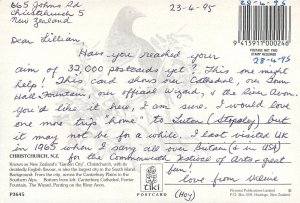 665 Johns Rd
Christchurch 5
New Zealand
23-4-95
28-4-95
9 415911 000246
POSTAGE NOT PAID
28-4-95
Dear Lillian
Have you reached your
aim of 33,000 postcards yet? This one might
help! This card shows our Cathedral, our Town
Hall Fountain, our official Wizard, & the River Avon.
You'd like it here, I am sure. I would love
one more trip 'home' to Luton (Stopsley) but
it may not be for a while. I last visited UK
in 1965 when I sang all over Britain (& in USA)
for the Commonwealth Festival of Arts - great
fun!
Love from
(Hoy)
CHRISTCHURCH, N.Z.
Known as New Zealand's "Garden City", Christchurch, with its
decidedly English flavour, is also the largest city in the South Island.
Background: From the city, across the Canterbury Plains to the
Southern Alps. Bottom from left: Canterbury Cathedral, Ferrier
Fountain, The Wizard, Punting on the River Avon.
P2645
tiki
POSTCARD
Pictorial Publications Limited